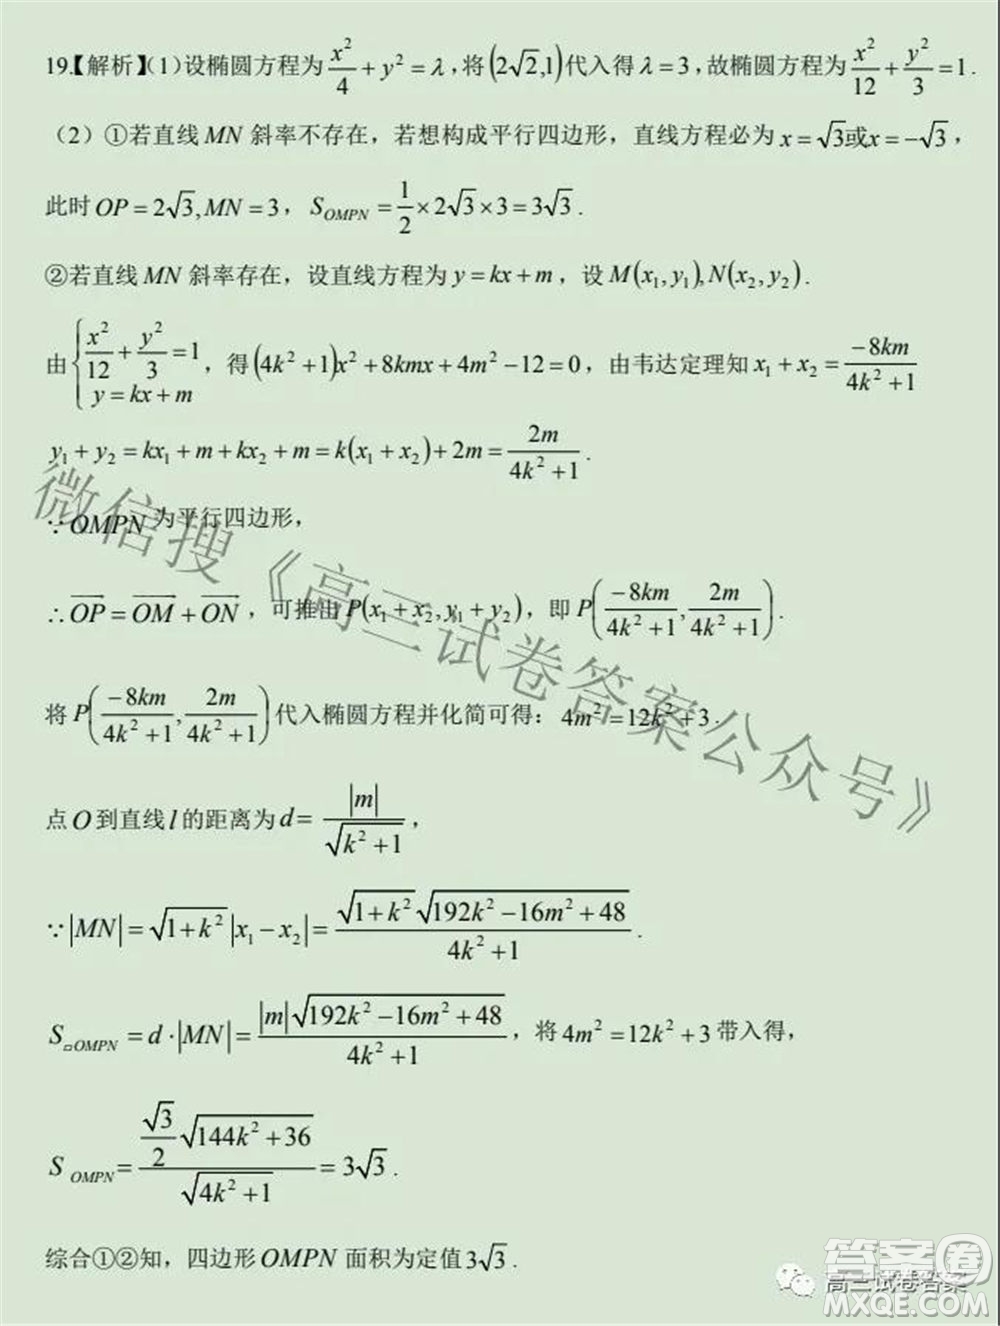 19【解析】(1)设椭圆方程为x²/4+y²=λ,将(2√2,1)代入得λ=3,故椭圆方程为x²/12+y²/3=1.
（2）①若直线MN斜率不存在，若想构成平行四边形，直线方程必为x=√3或x=-√3，
此时OP=2√3,MN=3，S_OMPN=1/2×2√3×3=3√3.
②若直线MN斜率存在，设直线方程为y=kx+m，设M(x₁,y₁),N(x₂,y₂).
由{x²/12+y²/3=1, y=kx+m，得(4k²+1)x²+8kmx+4m²-12=0，由韦达定理知x₁+x₂=-8km/(4k²+1)
y₁+y₂=kx₁+m+kx₂+m=k(x₁+x₂)+2m=2m/(4k²+1).
∵OMPN为平行四边形，
∴OP→=OM→+ON→，可推出P(x₁+x₂,y₁+y₂)，即P(-8km/(4k²+1),2m/(4k²+1)).
将P(-8km/(4k²+1),2m/(4k²+1))代入椭圆方程并化简可得：4m²=12k²+3.
点O到直线l的距离为d=|m|/√(k²+1)，
∵|MN|=√(1+k²)|x₁-x₂|=√(1+k²)√(192k²-16m²+48)/(4k²+1).
S▱OMPN=d·|MN|=|m|√(192k²-16m²+48)/(4k²+1)，将4m²=12k²+3带入得，
S OMPN=(√3/2)√(144k²+36)/√(4k²+1)=3√3.
综合①②知，四边形OMPN面积为定值3√3.
微信搜《高三试卷答案公众号》
高三试卷答案
答案圈
MXQE.COM